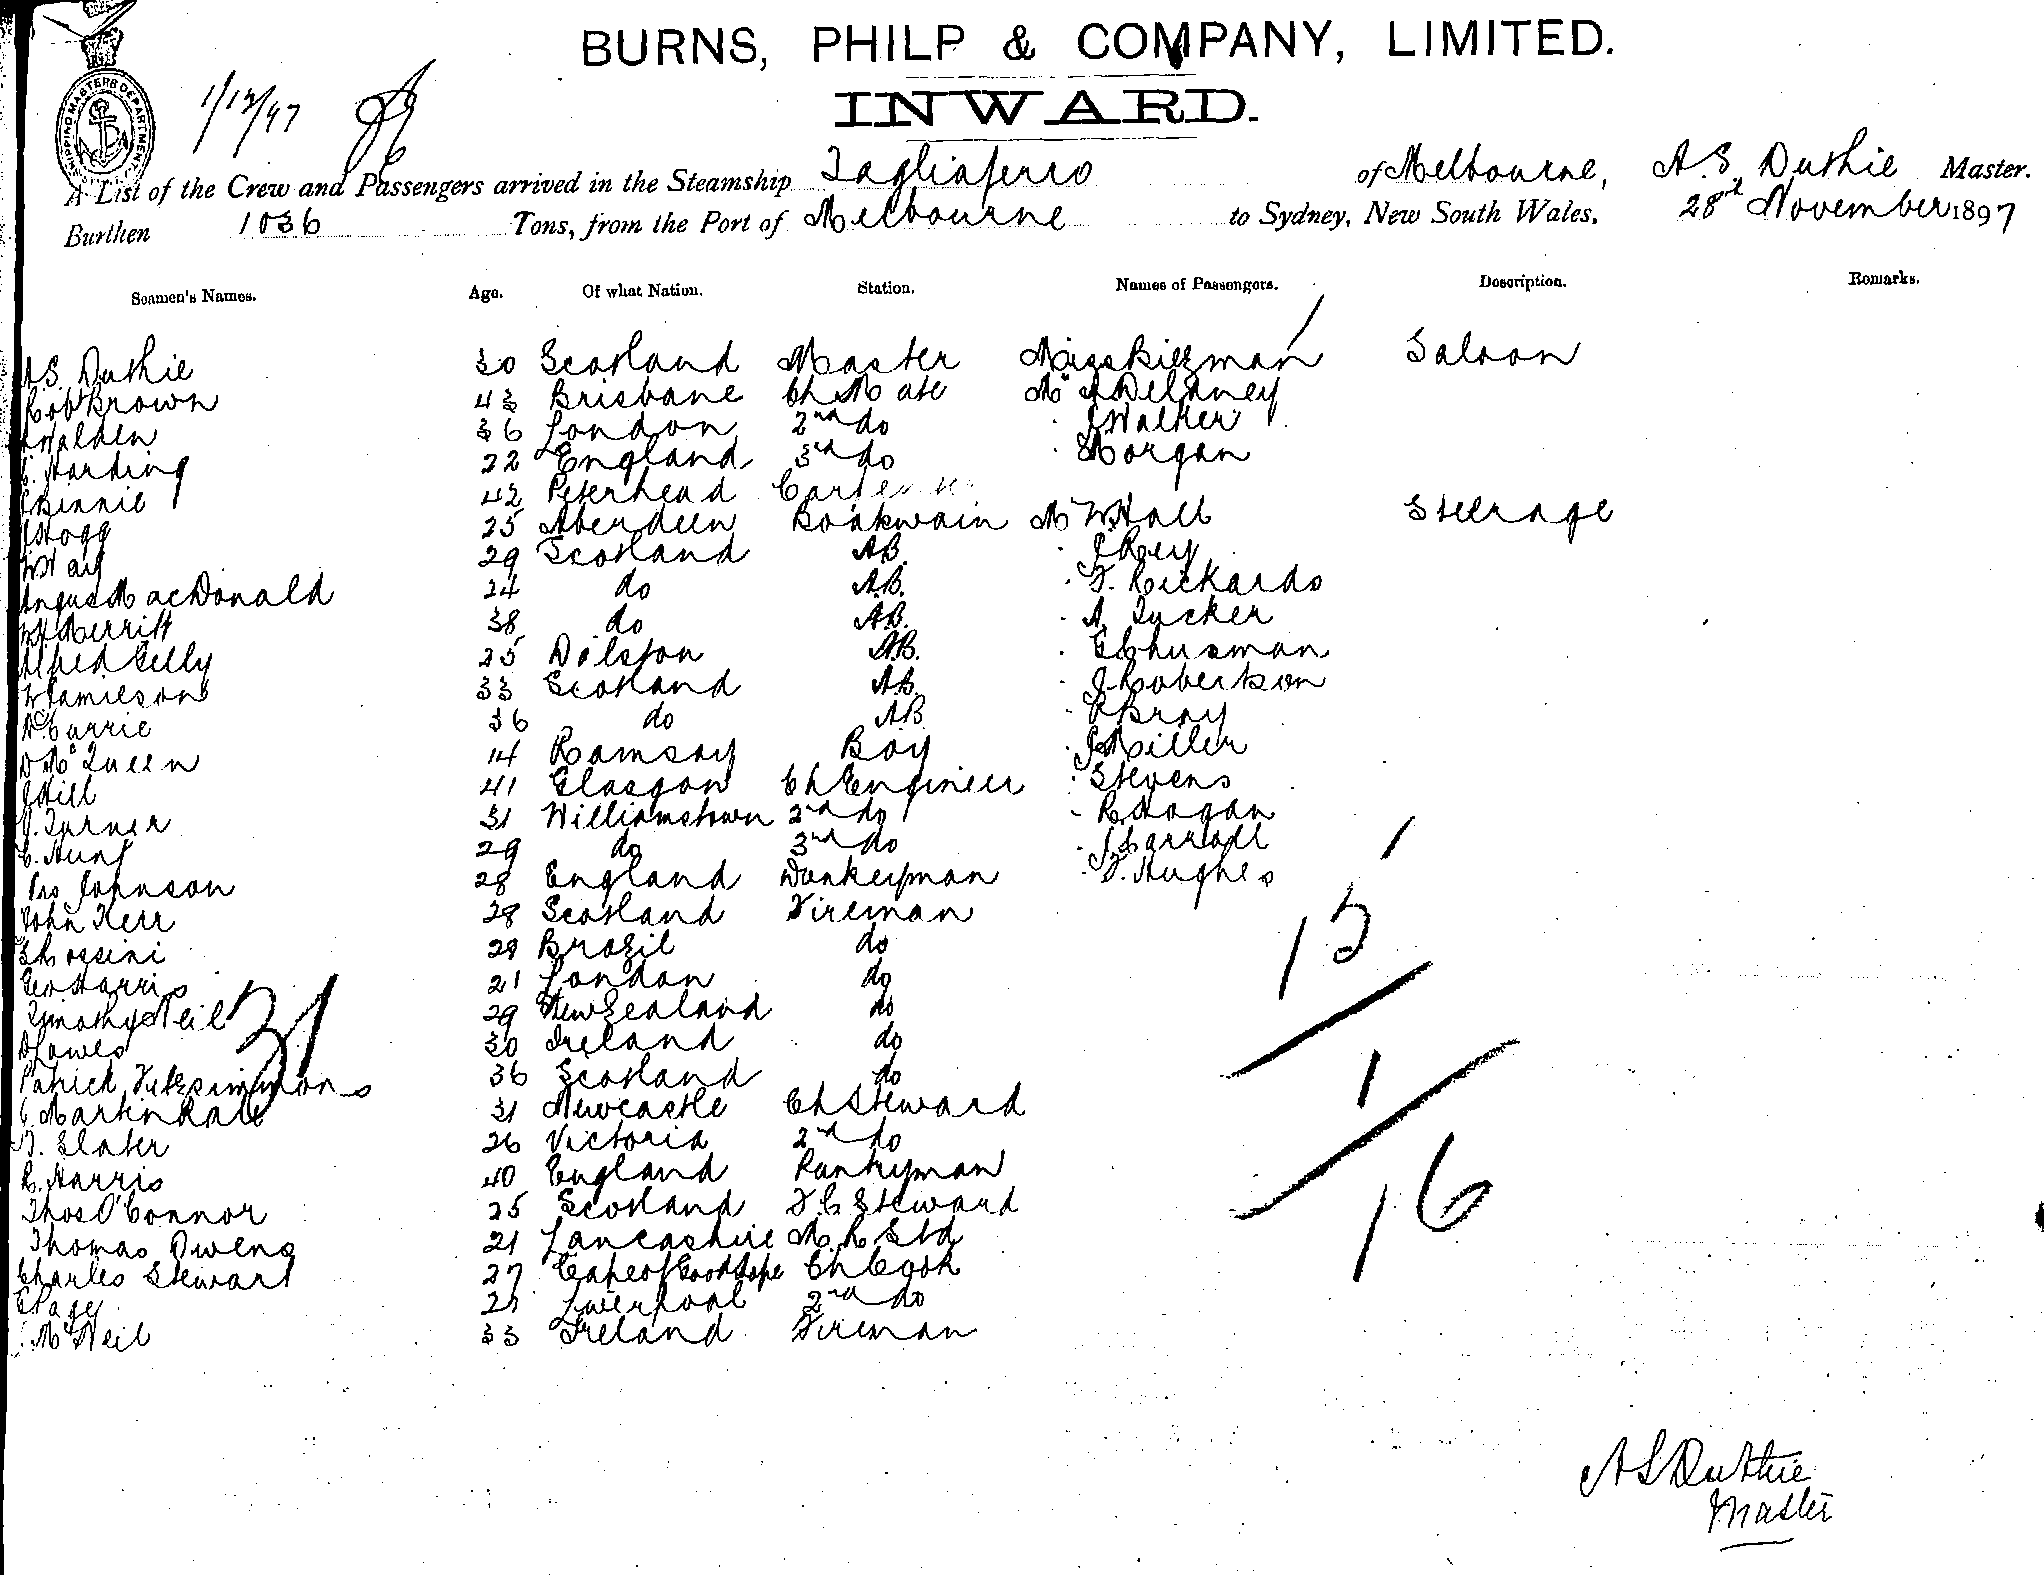 BURNS, PHILP & COMPANY, LIMITED.
INWARD.
SHIPPING MASTERS DEPARTMENT
1/12/97
A List of the Crew and Passengers arrived in the Steamship Tagliaferro of Melbourne, A.S. Duthie Master.
Burthen 1036 Tons, from the Port of Melbourne to Sydney, New South Wales. 28th November 1897
Seamen's Names. Age. Of what Nation. Station. Names of Passengers. Description. Remarks.
A.S. Duthie 30 Scotland Master Miss Saloon
Robt Brown 43 Brisbane Ch Mate Mr Delaney
Walden 36 London 2nd do J Walker
C. Harding 22 England 3rd do Morgan
Binnie 42 Peterhead
J Hogg 25 Aberdeen Boatswain Mr W Hall Steerage
W Hay 29 Scotland A.B. J Rey
Angus MacDonald 24 do A.B. F. Rickards
W J Merritt 38 do A.B. A. Tucker
Alfred Gelly 25 Dalston A.B.
W Jamieson 33 Scotland A.B. J Robertson
D Currie 36 do A.B. Bray
D McQueen 14 Ramsay Boy J Miller
J Hill 41 Glasgow Ch Engineer Stevens
J. Turner 31 Williamstown 2nd do R Hogan
C. Hunt 29 do 3rd do
Jno Johnson 28 England Donkeyman F. Hughes
John Kerr 28 Scotland Fireman
Rossini 29 Brazil do
Geo Harris 21 London do
Timothy Neil 29 New Zealand do
30 Ireland do
Patrick Fitzsimmons 36 Scotland do
C. Martindale 31 Newcastle Ch Steward
F. Slater 26 Victoria 2nd do
R. Harris 40 England Pantryman
Thos O'Connor 25 Scotland F C Steward
Thomas Owens 21 Lancashire M.R. Std
Charles Stewart 27 Cape of Good Hope Ch Cook
E Page 25 Liverpool 2nd do
McNeil 33 Ireland Fireman
31
1
15
1
16
A S Duthie
Master